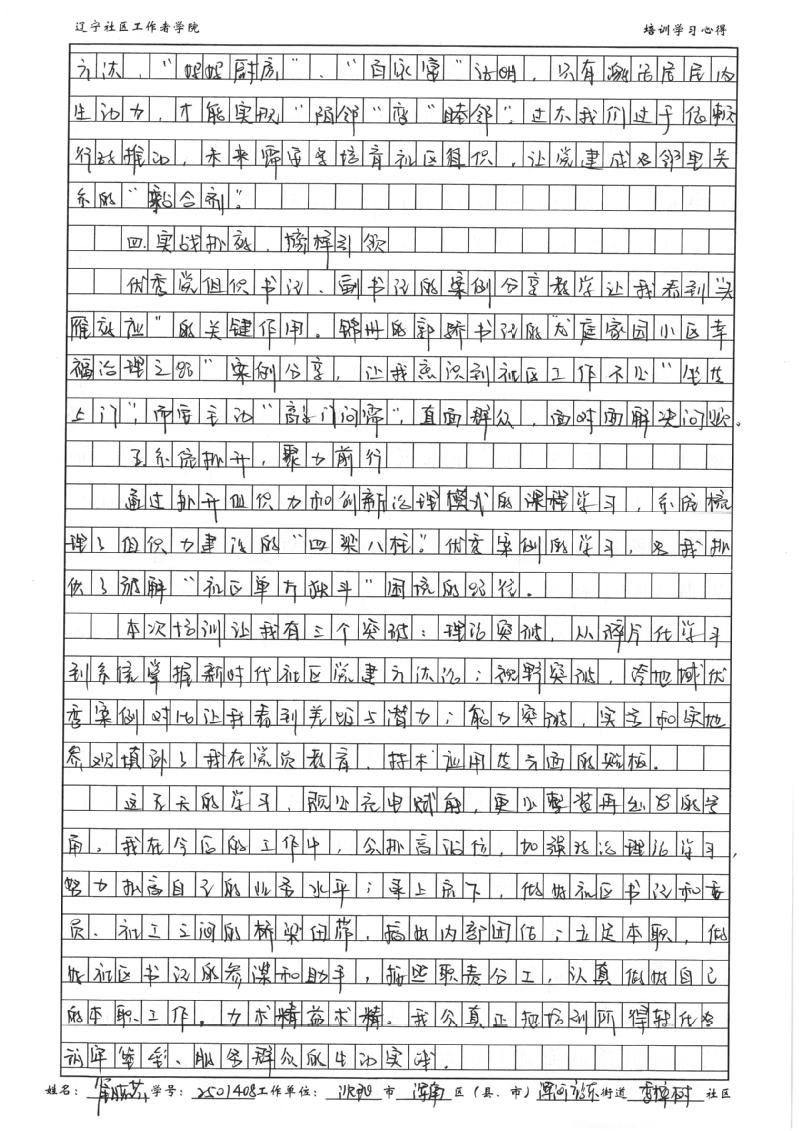 辽宁社区工作者学院 培训学习心得
方法，“妈妈厨房”、“百家宴”证明，只有激活居民内
生动力，才能实现“陌邻”变“睦邻”。过去我们过于依赖
行政推动，未来需要多培育社区组织，让党建成为邻里关
系的“黏合剂”。
四.实战扒效，榜样引领
优秀党组织书记、副书记的案例分享教学让我看到“头
雁效应”的关键作用。锦州的郭娇书记的“龙庭家园小区幸
福治理之路”案例分享，让我意识到社区工作不必“坐等
上门”，而要主动“敲门问需”，直面群众，面对面解决问题。
五.系统提升，聚力前行
通过提升组织力和创新治理模式的课程学习，系统梳
理了组织力建设的“四梁八柱”。优秀案例的学习，为我提
供了破解“社区单打独斗”困境的路径。
本次培训让我有三个突破：理论突破，从碎片化学习
到系统掌握新时代社区党建方法论；视野突破，跨地域优
秀案例对比让我看到差距与潜力；能力突破，实务和实地
参观填补了我在党员教育、技术应用等方面的短板。
这五天的学习，既是充电赋能，更是整装再出发的号
角。我在今后的工作中，会提高站位，加强政治理论学习，
努力提高自己的业务水平；承上启下，做好社区书记和委
员、社工之间的桥梁纽带，搞好内部团结；立足本职，做
好社区书记的参谋和助手，按照职责分工，认真做好自己
的本职工作。力求精益求精。我会真正把培训所得转化为
为民服务、服务群众的生动实践。
姓名： 学号：2501408 工作单位：沈阳市 浑南区（县、市）浑河站东街道 香樟树社区